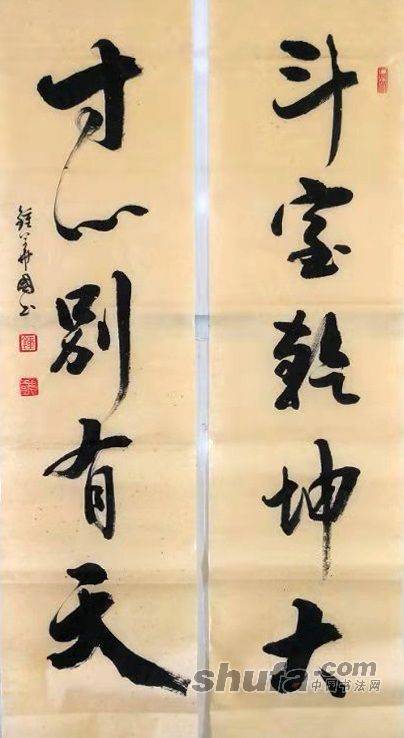 斗室乾坤大
寸心別有天
shufa.com
中国书法网